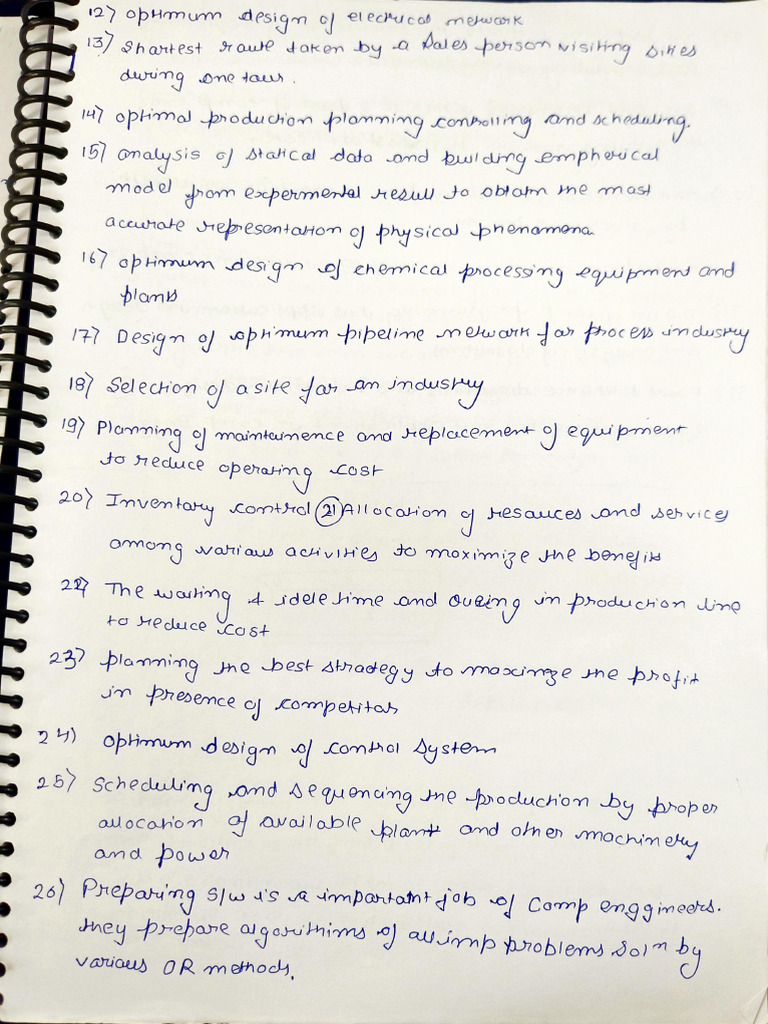 12) optimum design of electrical network
13) Shartest raute taken by a Sales person visiting sites
during one taur.
14) optimal production planning controlling and scheduling.
15) analysis of statical data and building empherical
model from expermental result to obtain the mast
accurate representation of physical phenomena.
16) optimum design of chemical processing equipment and
plants
17) Design of optimum pipeline network far process industry
18) Selection of a site far an industry
19) Planning of maintainence and replacement of equipment
to reduce operating cost
20) Inventory control (21) Allocation of resauces and services
among various activities to maximize the benefits
22) The waiting & idele time and queing in production line
to reduce cost
23) planning the best strategy to maximize the profit
in presence of competitar
24) optimum design of control system
25) Scheduling and sequencing the production by proper
allocation of available plant and other machinery
and power
26) Preparing S/w is a important job of Comp enggineers.
they prepare algorithims of all imp problems Solⁿ by
various OR methods.